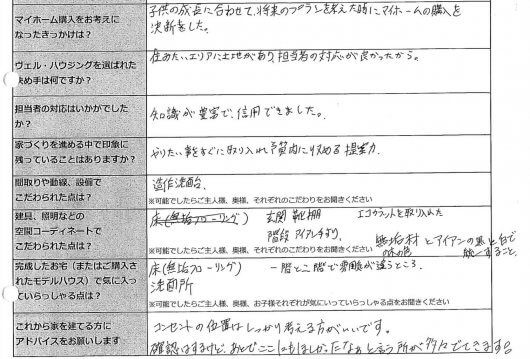 マイホーム購入をお考えに
なったきっかけは？
子供の成長に合わせて、将来のプランを考えた時にマイホームの購入を
決断をした。
ヴェル・ハウジングを選ばれた
決め手は何ですか？
住みたいエリアに土地があり、担当者の対応が良かったから。
担当者の対応はいかがでした
か？
知識が豊富で、信用できました。
家づくりを進める中で印象に
残っていることはありますか？
やりたい事をすぐに取り入れ予算内に収める提案力
間取りや動線、設備で
こだわられた点は？
造作洗面台、
※可能でしたらご主人様、奥様、それぞれのこだわりをお聞きください
建具、照明などの
空間コーディネートで
こだわられた点は？
床(無垢フローリング) 玄関 靴棚 エコカラットを取り入れた
階段 アイアン手すり、
無垢材とアイアンの黒と白で
木の色 統一すること。
※可能でしたらご主人様、奥様、それぞれのこだわりをお聞きください
完成したお宅（またはご購入さ
れたモデルハウス）で気に入っ
ていらっしゃる点は？
床(無垢フローリング) 一階と二階で雰囲気が違うところ。
洗面所
※可能でしたらご主人様、奥様、お子様それぞれが気にいっていらっしゃる点をお聞きください
これから家を建てる方に
アドバイスをお願いします
コンセントの位置はしっかり考える方がいいです。
確認はするけど、あとでここにもほしかったなぁと言う所が多々でてきます。